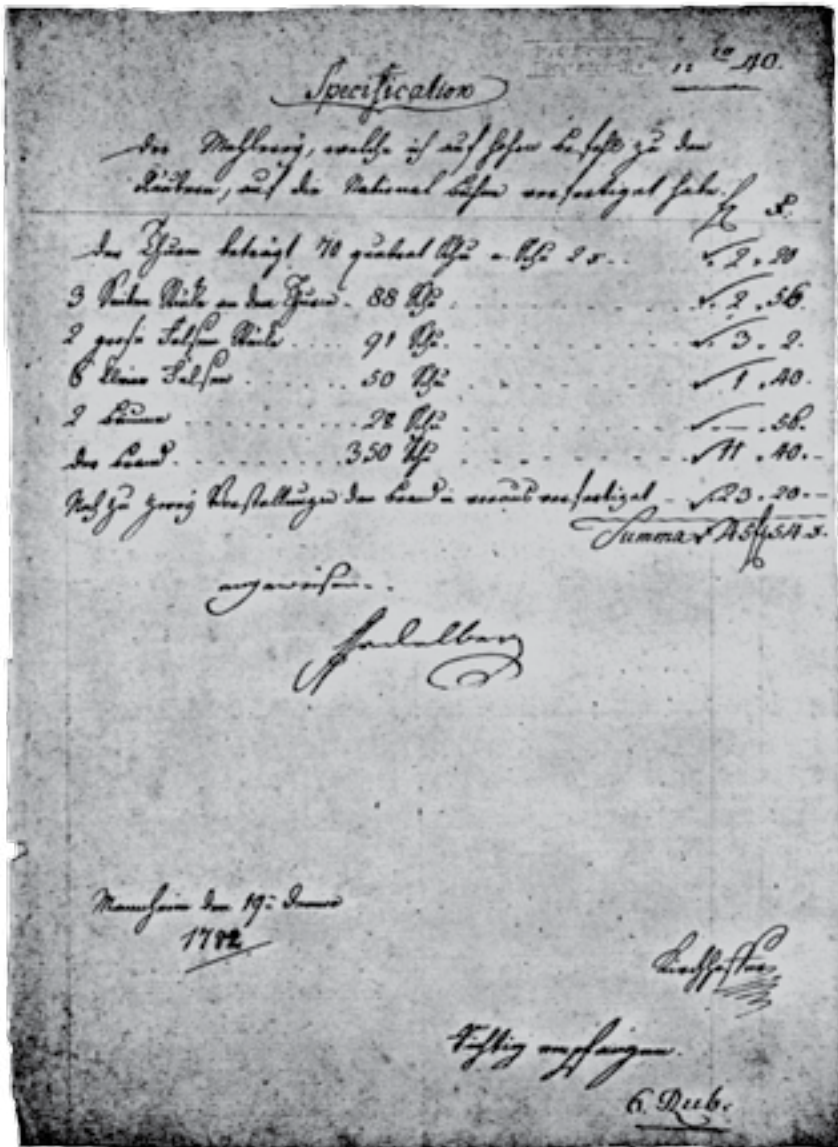 n ro 40.
Specification
der Mahlereÿ, welche ich auf hohen befehl zu den
Räubern, auf die National bühne verfertiget habe.
fl x.
der Thurn beträgt 70 quadrat Schu a. Schu 2 x . . 2 . 20
3 Seiten Stücke an den Thurn . 88 Schu . . . . . . 2 . 56
2 große Felsen Stücke . . . . 91 Schu . . . . . . 3 . 2.
6 kleine Felsen . . . . . . 50 Schu . . . . . . 1 . 40.
2 bäume . . . . . . . . 28 Schu . . . . . . — . 56.
der brand . . . . . . . . 350 Schu . . . . . . 11 . 40.
Noch zu zweÿ Vorstellungen den brand voraus verfertiget — 23 . 20.
Summa 45 fl 54 x.
angewiesen.
Mannheim den 19
1782
Richtig empfangen.